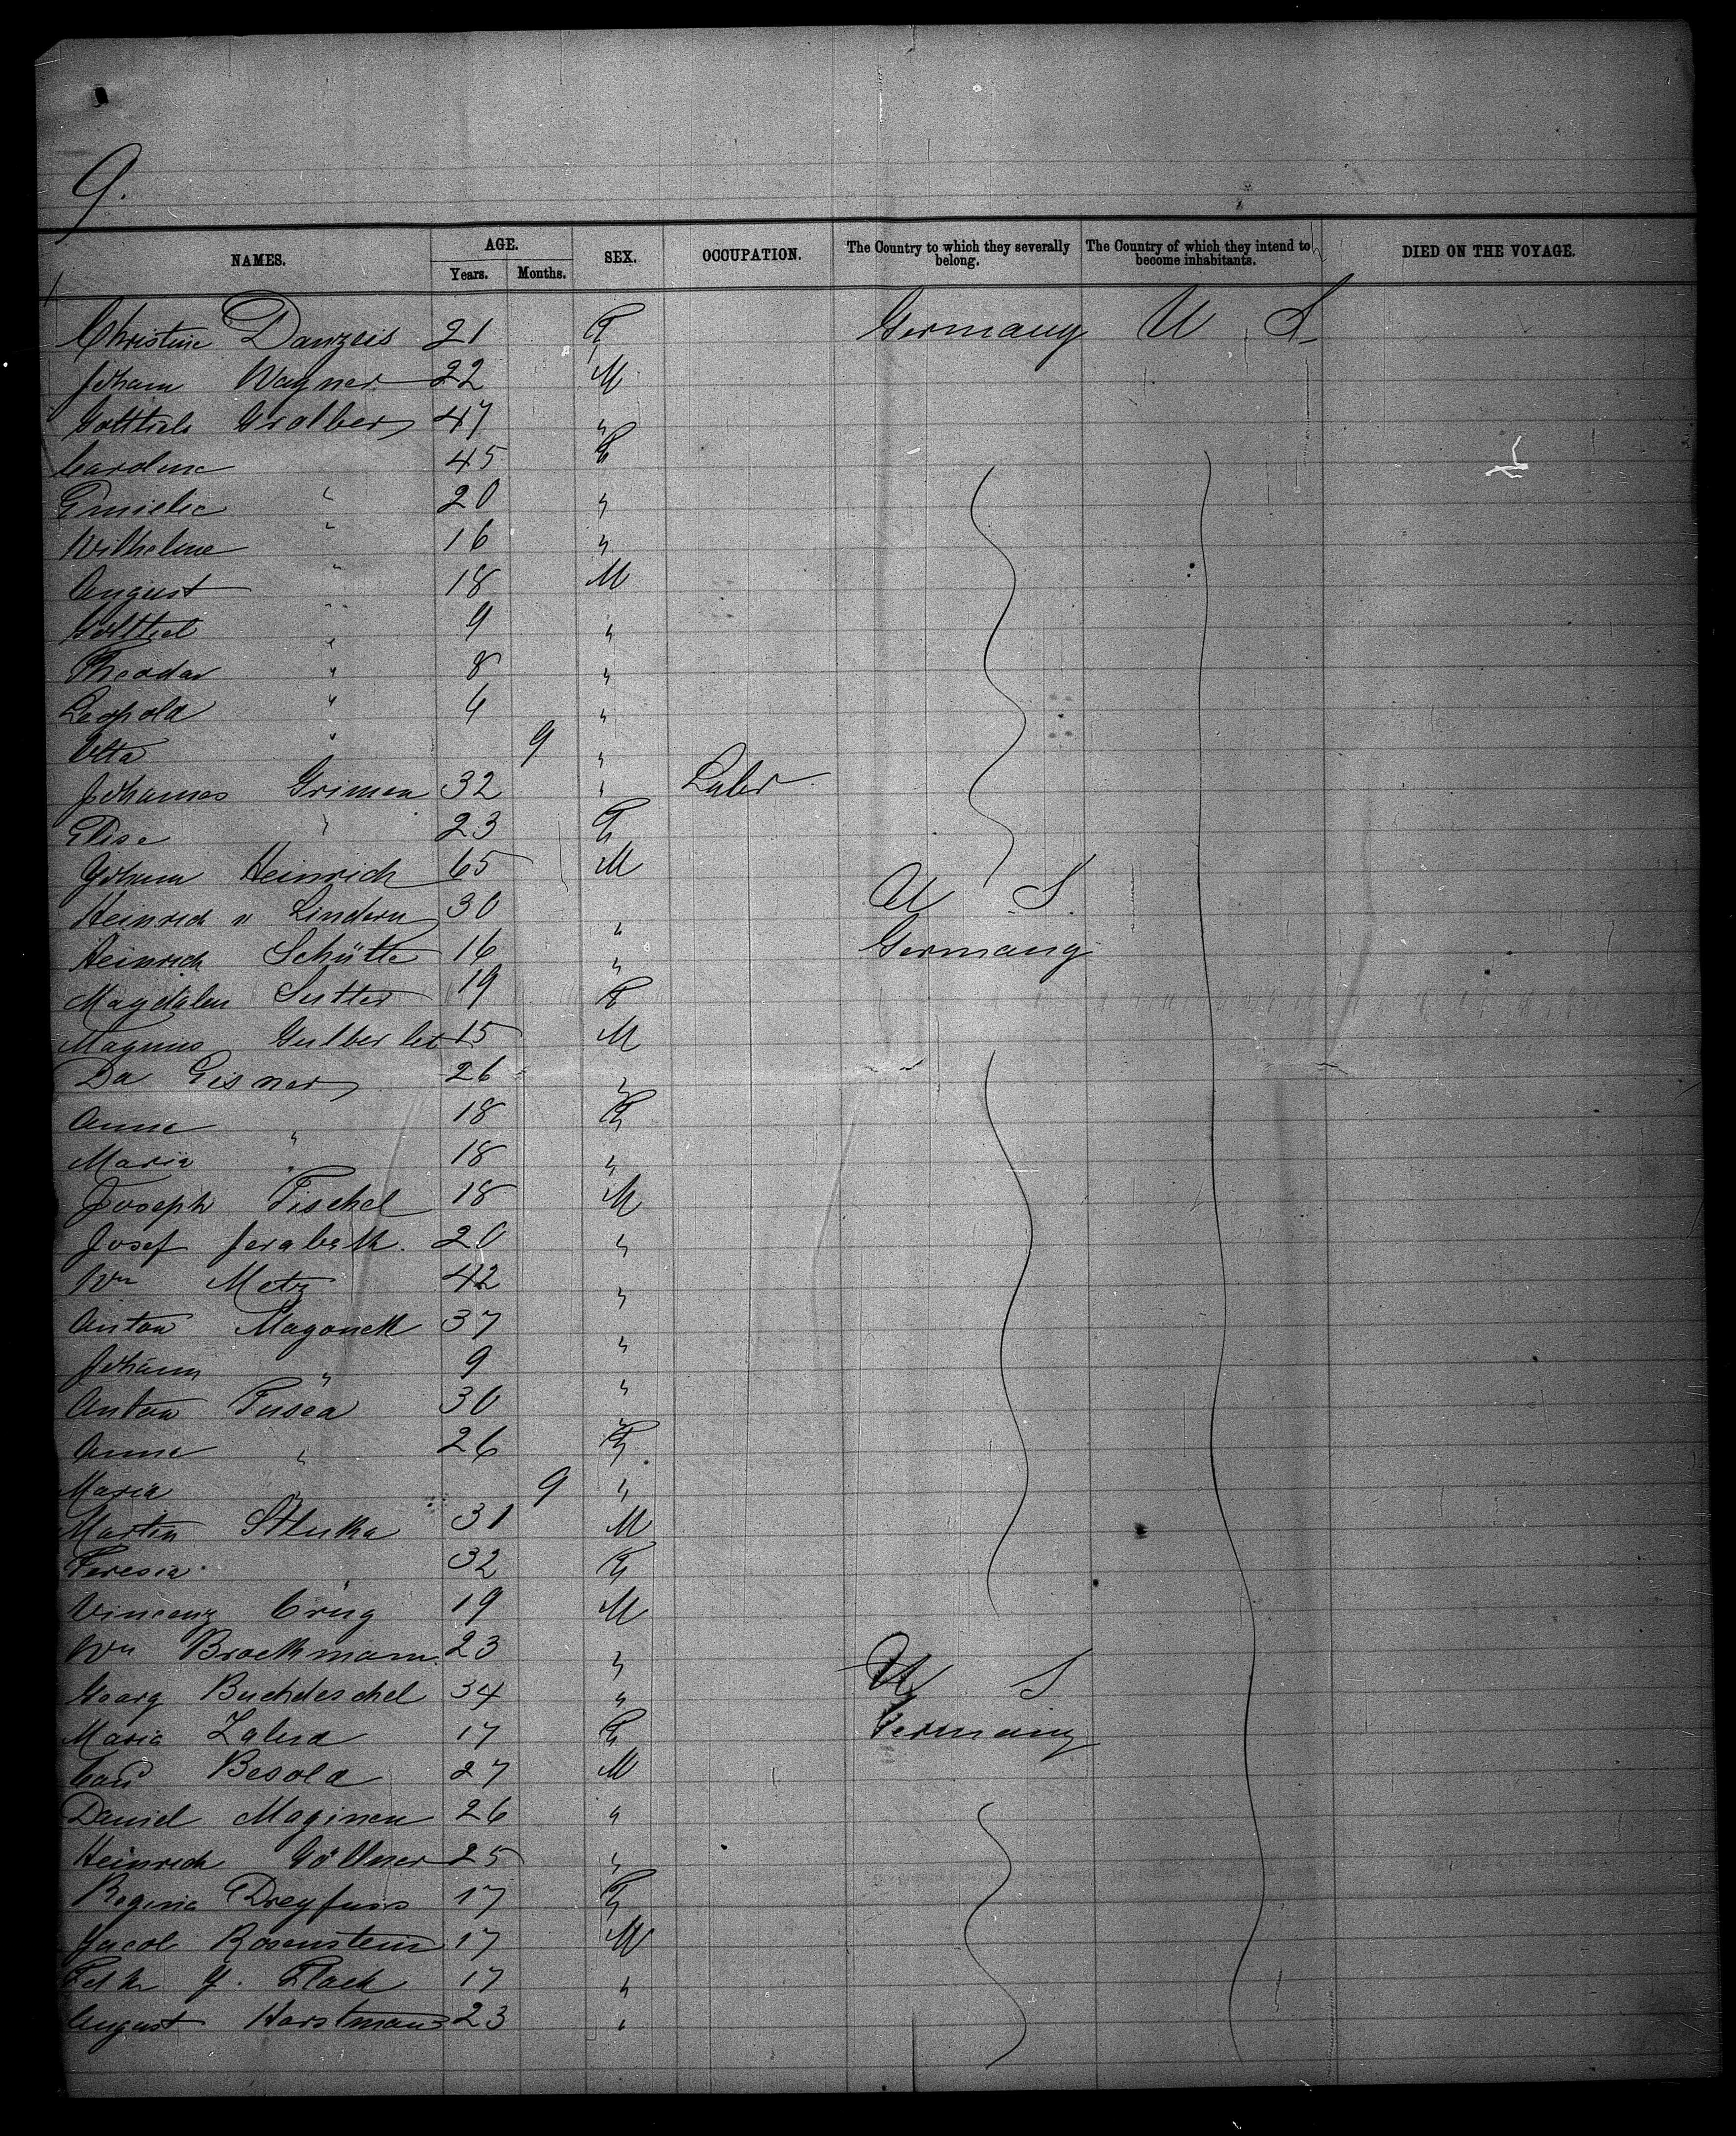 9.
NAMES. AGE. Years. Months. SEX. OCCUPATION. The Country to which they severally belong. The Country of which they intend to become inhabitants. DIED ON THE VOYAGE.
Christine Danzeis 21 F Germany U S
Johann Wagner 22 M
Gottlieb Gralber 47 "
Caroline 45 F
Emielie " 20 "
Wilhelme " 16 "
August " 18 M
Gottlieb " 9 "
Theodor " 8 "
Leopold " 4 "
Otto " 9 "
Johannes Grimen 32 " Labr
Elise " 23 F
Johann Heinrich 65 M U S
Heinrich v Lindern 30 "
Heinrich Schütte 16 " Germany
Magdalen Sutter 19 F
Magnus Gulberlet 15 M
Da Eisner 26 "
Annie " 18 F
Maria " 18 "
Joseph Fischel 18 M
Josef Jerabek 20 "
Wm Metz 42 "
Anton Magonek 37 "
Johann " 9 "
Anton Pusca 30 "
Anna " 26 F
Maria " 9 "
Martin Stluka 31 M
Teresia " 32 F
Vincenz Crug 19 M
Wm Brockmann 23 " U S
Georg Buchdeschel 34 "
Maria Zalud 17 F Germany
Besold 27 M
Daniel Maginen 26 "
Heinrich Göllner 25 "
Regina Dreyfuss 17 F
Jacob Rosenstein 17 M
J. Flack 17 "
August Horstmann 23 "